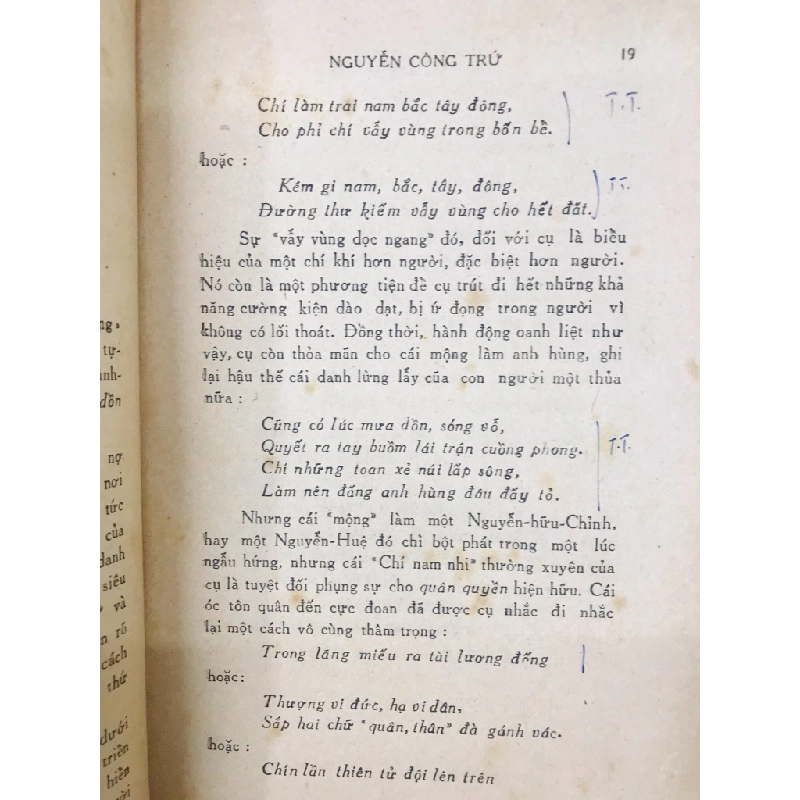 NGUYỄN CÔNG TRỨ 19
Chí làm trai nam bắc tây đông,
Cho phỉ chí vẫy vùng trong bốn bề.
T.T.
hoặc :
Kém gì nam, bắc, tây, đông,
Đường thư kiếm vẫy vùng cho hết đất.
T.T.
Sự "vẫy vùng dọc ngang" đó, đối với cụ là biểu
hiệu của một chí khí hơn người, đặc biệt hơn người.
Nó còn là một phương tiện để cụ trút đi hết những khả
năng cường kiện dào dạt, bị ứ đọng trong người vì
không có lối thoát. Đồng thời, hành động oanh liệt như
vậy, cụ còn thỏa mãn cho cái mộng làm anh hùng, ghi
lại hậu thế cái danh lừng lẫy của con người một thủa
nữa :
Cũng có lúc mưa dồn, sóng vỗ,
Quyết ra tay buồm lái trận cuồng phong.
T.T.
Chí những toan xẻ núi lấp sông,
Làm nên đấng anh hùng đâu đấy tỏ.
Nhưng cái "mộng" làm một Nguyễn-hữu-Chỉnh,
hay một Nguyễn-Huệ đó chỉ bột phát trong một lúc
ngẫu hứng, nhưng cái "Chí nam nhi" thường xuyên của
cụ là tuyệt đối phụng sự cho quân quyền hiện hữu. Cái
óc tôn quân đến cực đoan đã được cụ nhắc đi nhắc
lại một cách vô cùng thâm trọng :
Trong lăng miếu ra tài lương đống
hoặc:
Thượng vi đức, hạ vi dân,
Sắp hai chữ "quân, thân" đà gánh vác.
hoặc :
Chín lần thiên tử đội lên trên
ng»
tự-
nh-
dồn
nợ
nơi
tức
của
danh
siêu
và
n rõ
cách
thứ
dưới
triền
hiền